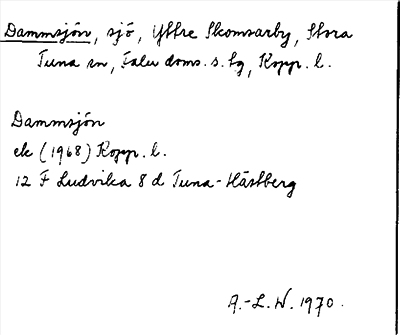 Dammsjön, sjö, Yttre Skomsarby, Stora
Tuna sn, Falu doms. s. tg, Kopp. l.
Dammsjön
ek (1968) Kopp. l.
12 F Ludvika 8 d Tuna-Hästberg
A.-L. W. 1970.